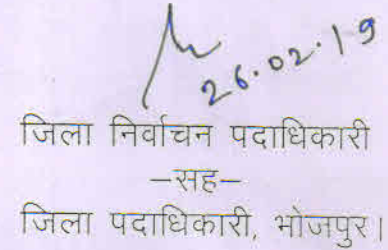 26.02.19
जिला निर्वाचन पदाधिकारी
–सह–
जिला पदाधिकारी, भोजपुर।